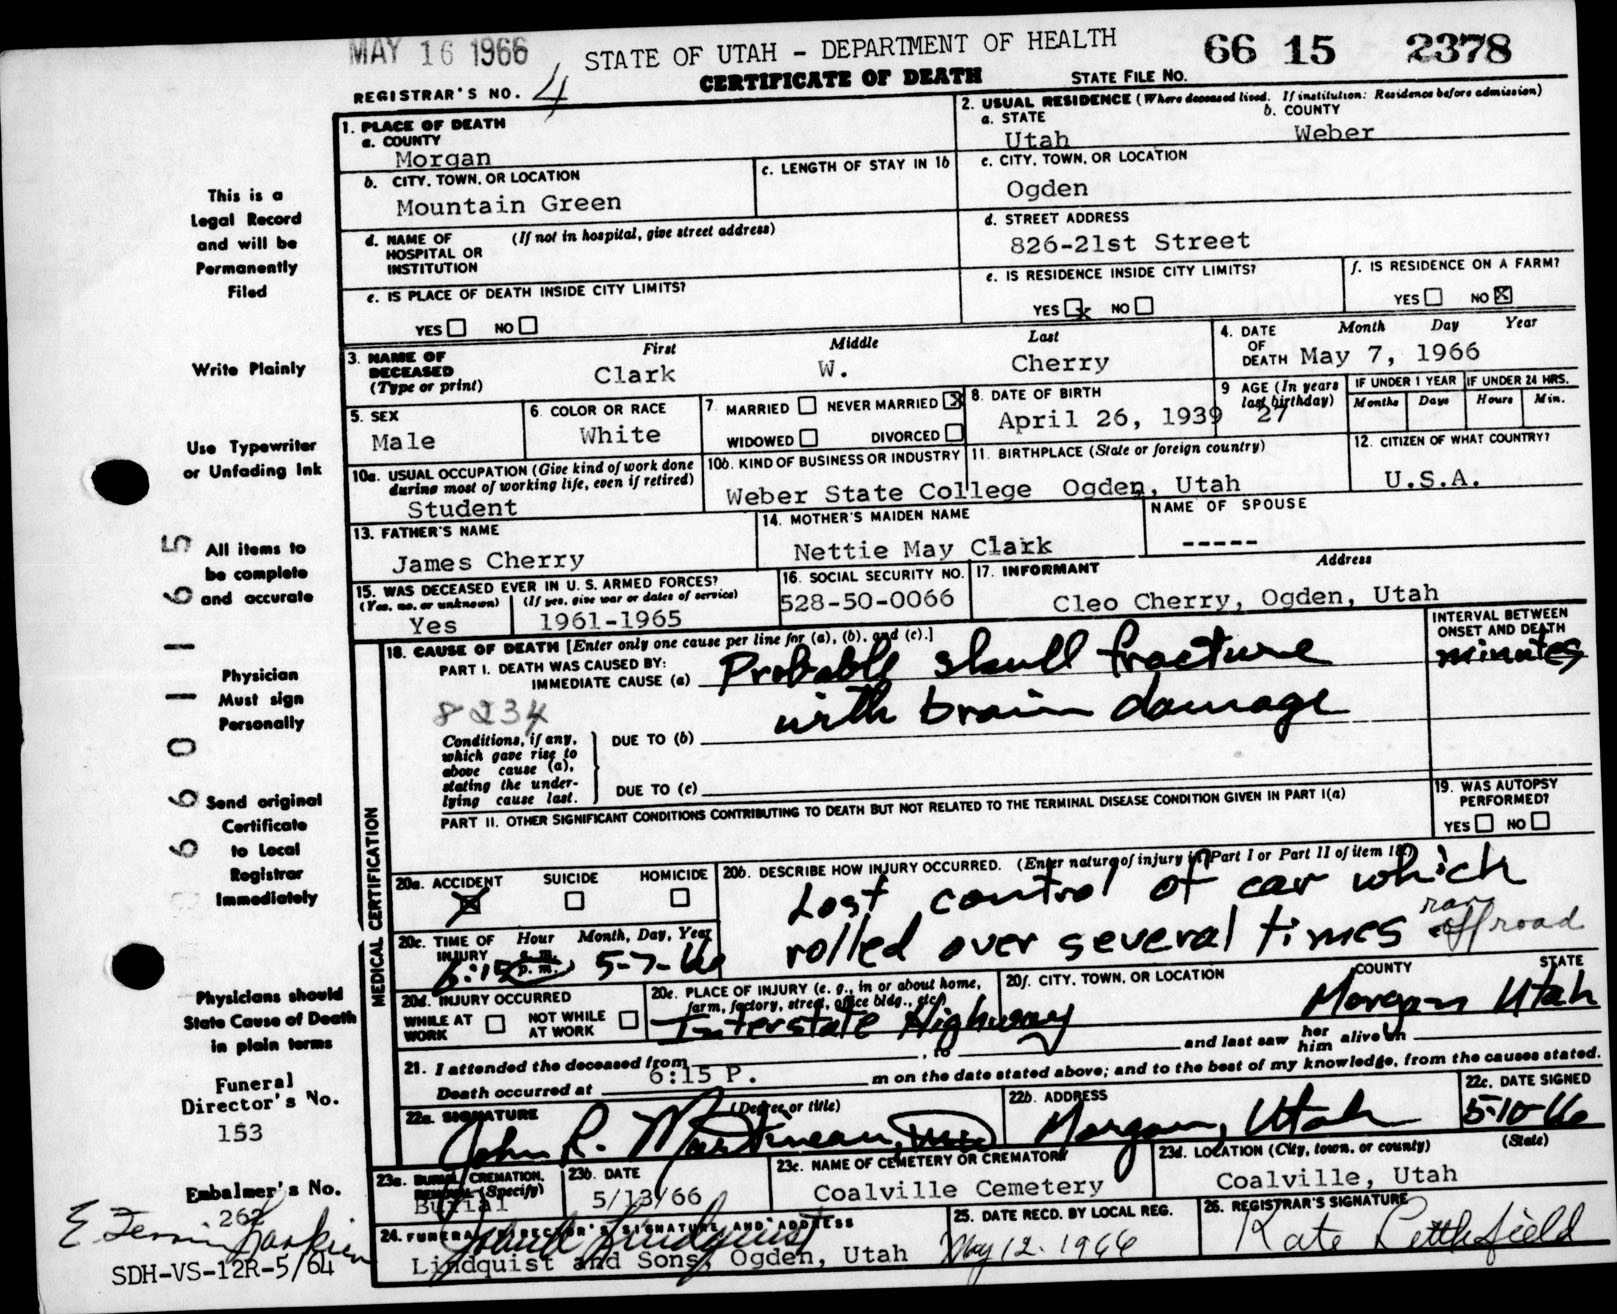 MAY 16 1966
STATE OF UTAH - DEPARTMENT OF HEALTH 66 15 2378
REGISTRAR'S NO. 4 CERTIFICATE OF DEATH STATE FILE NO.
1. PLACE OF DEATH
a. COUNTY
Morgan
2. USUAL RESIDENCE (Where deceased lived. If institution: Residence before admission)
a. STATE b. COUNTY
Utah Weber
b. CITY, TOWN, OR LOCATION c. LENGTH OF STAY IN 1b
Mountain Green
c. CITY, TOWN, OR LOCATION
Ogden
d. NAME OF HOSPITAL OR INSTITUTION (If not in hospital, give street address)
d. STREET ADDRESS
826-21st Street
e. IS PLACE OF DEATH INSIDE CITY LIMITS?
YES NO
e. IS RESIDENCE INSIDE CITY LIMITS?
YES x NO
f. IS RESIDENCE ON A FARM?
YES NO X
3. NAME OF DECEASED (Type or print)
First Middle Last
Clark W. Cherry
4. DATE OF DEATH Month Day Year
May 7, 1966
5. SEX
Male
6. COLOR OR RACE
White
7. MARRIED NEVER MARRIED X
WIDOWED DIVORCED
8. DATE OF BIRTH
April 26, 1939
9 AGE (In years last birthday)
27
IF UNDER 1 YEAR IF UNDER 24 HRS.
Months Days Hours Min.
10a. USUAL OCCUPATION (Give kind of work done during most of working life, even if retired)
Student
10b. KIND OF BUSINESS OR INDUSTRY
Weber State College
11. BIRTHPLACE (State or foreign country)
Ogden, Utah
12. CITIZEN OF WHAT COUNTRY?
U.S.A.
13. FATHER'S NAME
James Cherry
14. MOTHER'S MAIDEN NAME
Nettie May Clark
NAME OF SPOUSE
-----
15. WAS DECEASED EVER IN U. S. ARMED FORCES?
(Yes, no, or unknown) (If yes, give war or dates of service)
Yes 1961-1965
16. SOCIAL SECURITY NO.
528-50-0066
17. INFORMANT Address
Cleo Cherry, Ogden, Utah
18. CAUSE OF DEATH [Enter only one cause per line for (a), (b), and (c).]
INTERVAL BETWEEN ONSET AND DEATH
PART I. DEATH WAS CAUSED BY:
IMMEDIATE CAUSE (a) Probable skull fracture
minutes
8234
with brain damage
Conditions, if any, which gave rise to above cause (a), stating the underlying cause last.
DUE TO (b)
DUE TO (c)
PART II. OTHER SIGNIFICANT CONDITIONS CONTRIBUTING TO DEATH BUT NOT RELATED TO THE TERMINAL DISEASE CONDITION GIVEN IN PART I(a)
19. WAS AUTOPSY PERFORMED?
YES NO
MEDICAL CERTIFICATION
20a. ACCIDENT SUICIDE HOMICIDE
X
20b. DESCRIBE HOW INJURY OCCURRED. (Enter nature of injury in Part I or Part II of item 18.)
Lost control of car which
rolled over several times ran off road
20c. TIME OF INJURY Hour Month, Day, Year
6:15 a.m. p.m. 5-7-66
20d. INJURY OCCURRED
WHILE AT WORK NOT WHILE AT WORK
20e. PLACE OF INJURY (e. g., in or about home, farm, factory, street, office bldg., etc.)
Interstate Highway
20f. CITY, TOWN, OR LOCATION COUNTY STATE
Morgan Utah
21. I attended the deceased from , to and last saw her him alive on
Death occurred at 6:15 P. m on the date stated above; and to the best of my knowledge, from the causes stated.
22a. SIGNATURE (Degree or title)
John R. Martineau, MD
22b. ADDRESS
Morgan, Utah
22c. DATE SIGNED
5-10-66
23a. BURIAL, CREMATION, REMOVAL (Specify)
Burial
23b. DATE
5/13/66
23c. NAME OF CEMETERY OR CREMATORY
Coalville Cemetery
23d. LOCATION (City, town, or county) (State)
Coalville, Utah
24. FUNERAL DIRECTOR'S SIGNATURE AND ADDRESS
Lindquist
Lindquist and Sons, Ogden, Utah
25. DATE RECD. BY LOCAL REG.
May 12. 1966
26. REGISTRAR'S SIGNATURE
Kate Littlefield
This is a
Legal Record
and will be
Permanently
Filed
Write Plainly
Use Typewriter
or Unfading Ink
All items to
be complete
and accurate
Physician
Must sign
Personally
Send original
Certificate
to Local
Registrar
Immediately
Physicians should
State Cause of Death
in plain terms
Funeral
Director's No.
153
Embalmer's No.
262
SDH-VS-12R-5/64
6601165